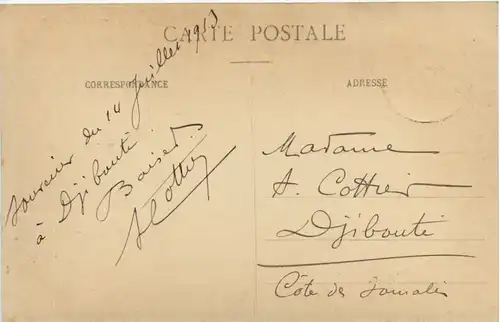 CARTE POSTALE
CORRESPONDANCE
ADRESSE
Souvenir du 14 Juillet 1913
à Djibouti
Baisers.
A Cottier
Madame
A. Cottier
Djibouti
Côte des Somalis